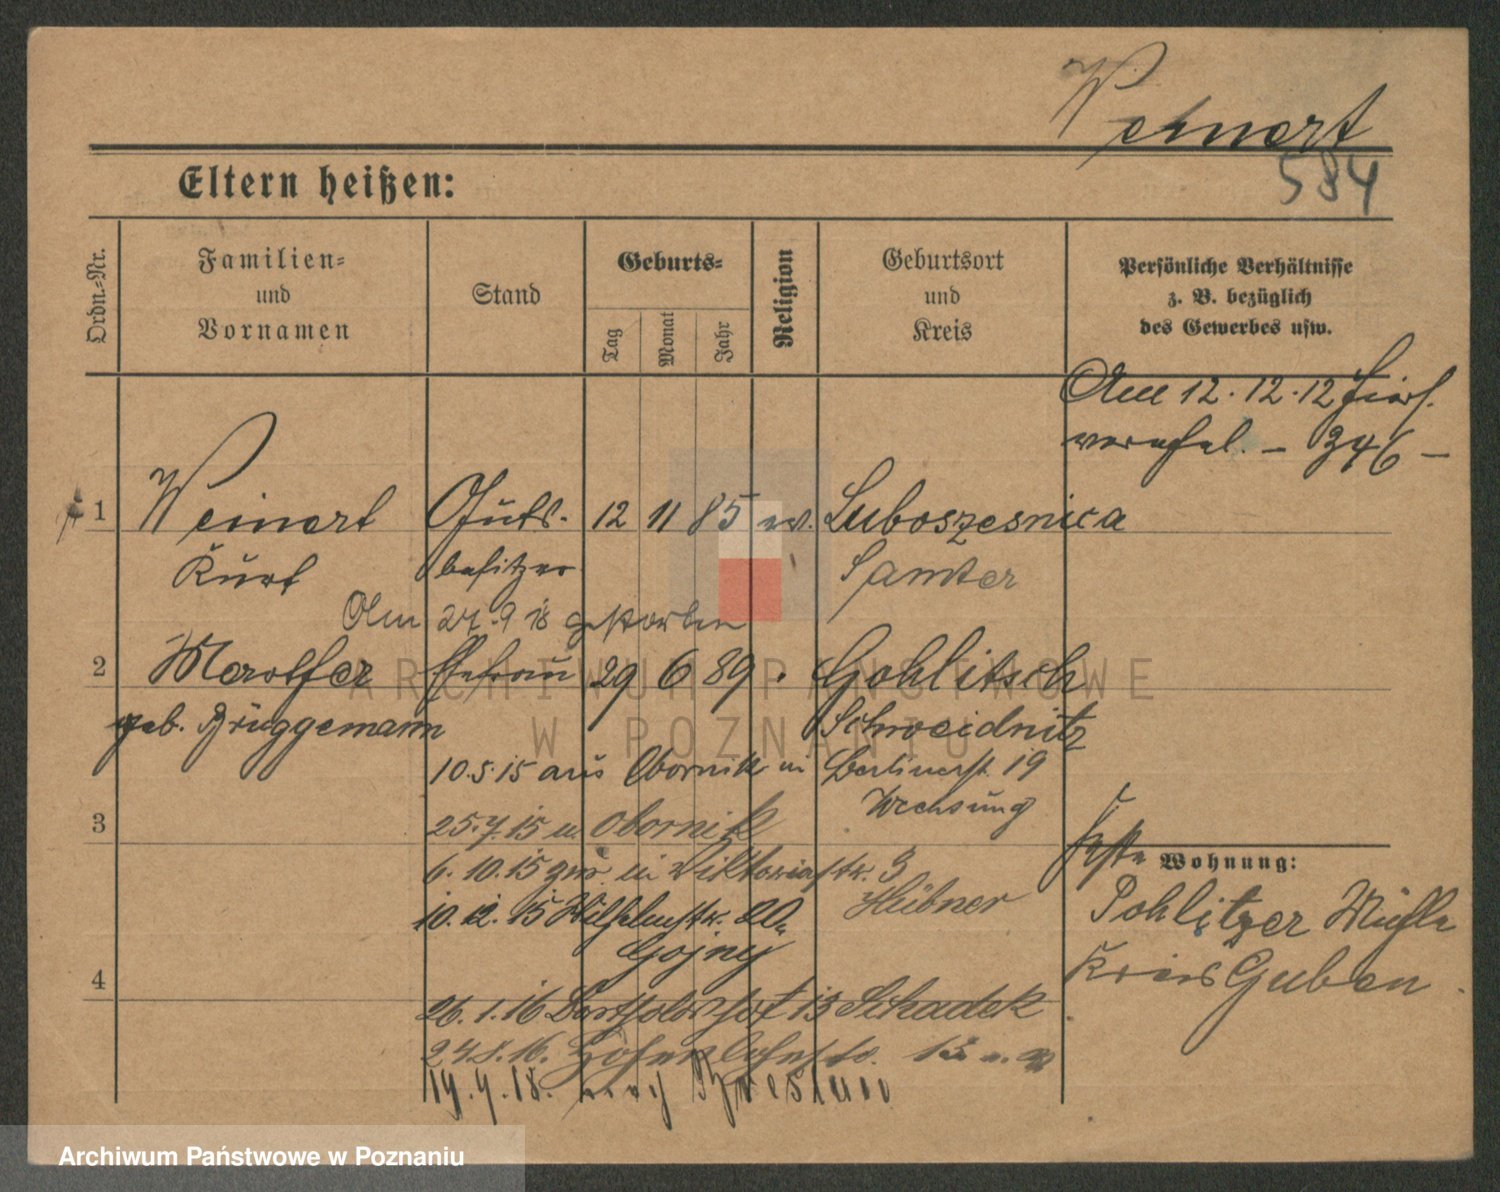 Weinert
584
Eltern heißen:
Ordn.-Nr.
Familien-
und
Vornamen
Stand
Geburts-
Tag
Monat
Jahr
Religion
Geburtsort
und
Kreis
Persönliche Verhältnisse
z. B. bezüglich
des Gewerbes usw.
Am 12.12.12 hier
346
1 Weinert Guts- 12 11 85 ev. Luboszesnica
Kurt besitzer Samter
Am 27.9 18 gestorben
2 Ehefrau 29 6 89 Gohlitsch
geb. Brüggemann Schweidnitz
10.5.15 aus Obornik in Berlinerst. 19
Wechsung
3 25.7.15 n. Obornik
6.10.15 in Viktoriastr. 3
Hübner
10.12.15 Wilhelmstr.
Gojny
4
26.1.16 13 Schadek
14.4.18. nach Breslau
Wohnung:
Pohlitzer Mühle
Kreis Guben.
ARCHIWUM PAŃSTWOWE
W POZNANIU
Archiwum Państwowe w Poznaniu